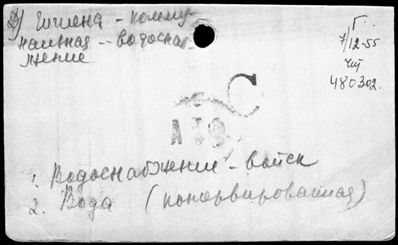 2) Гигиена - комму-
нальная - водоснаб-
жение
Г.
7/12-55
480302.
С
1. Водоснабжение - войск
2. Вода (консервированная)